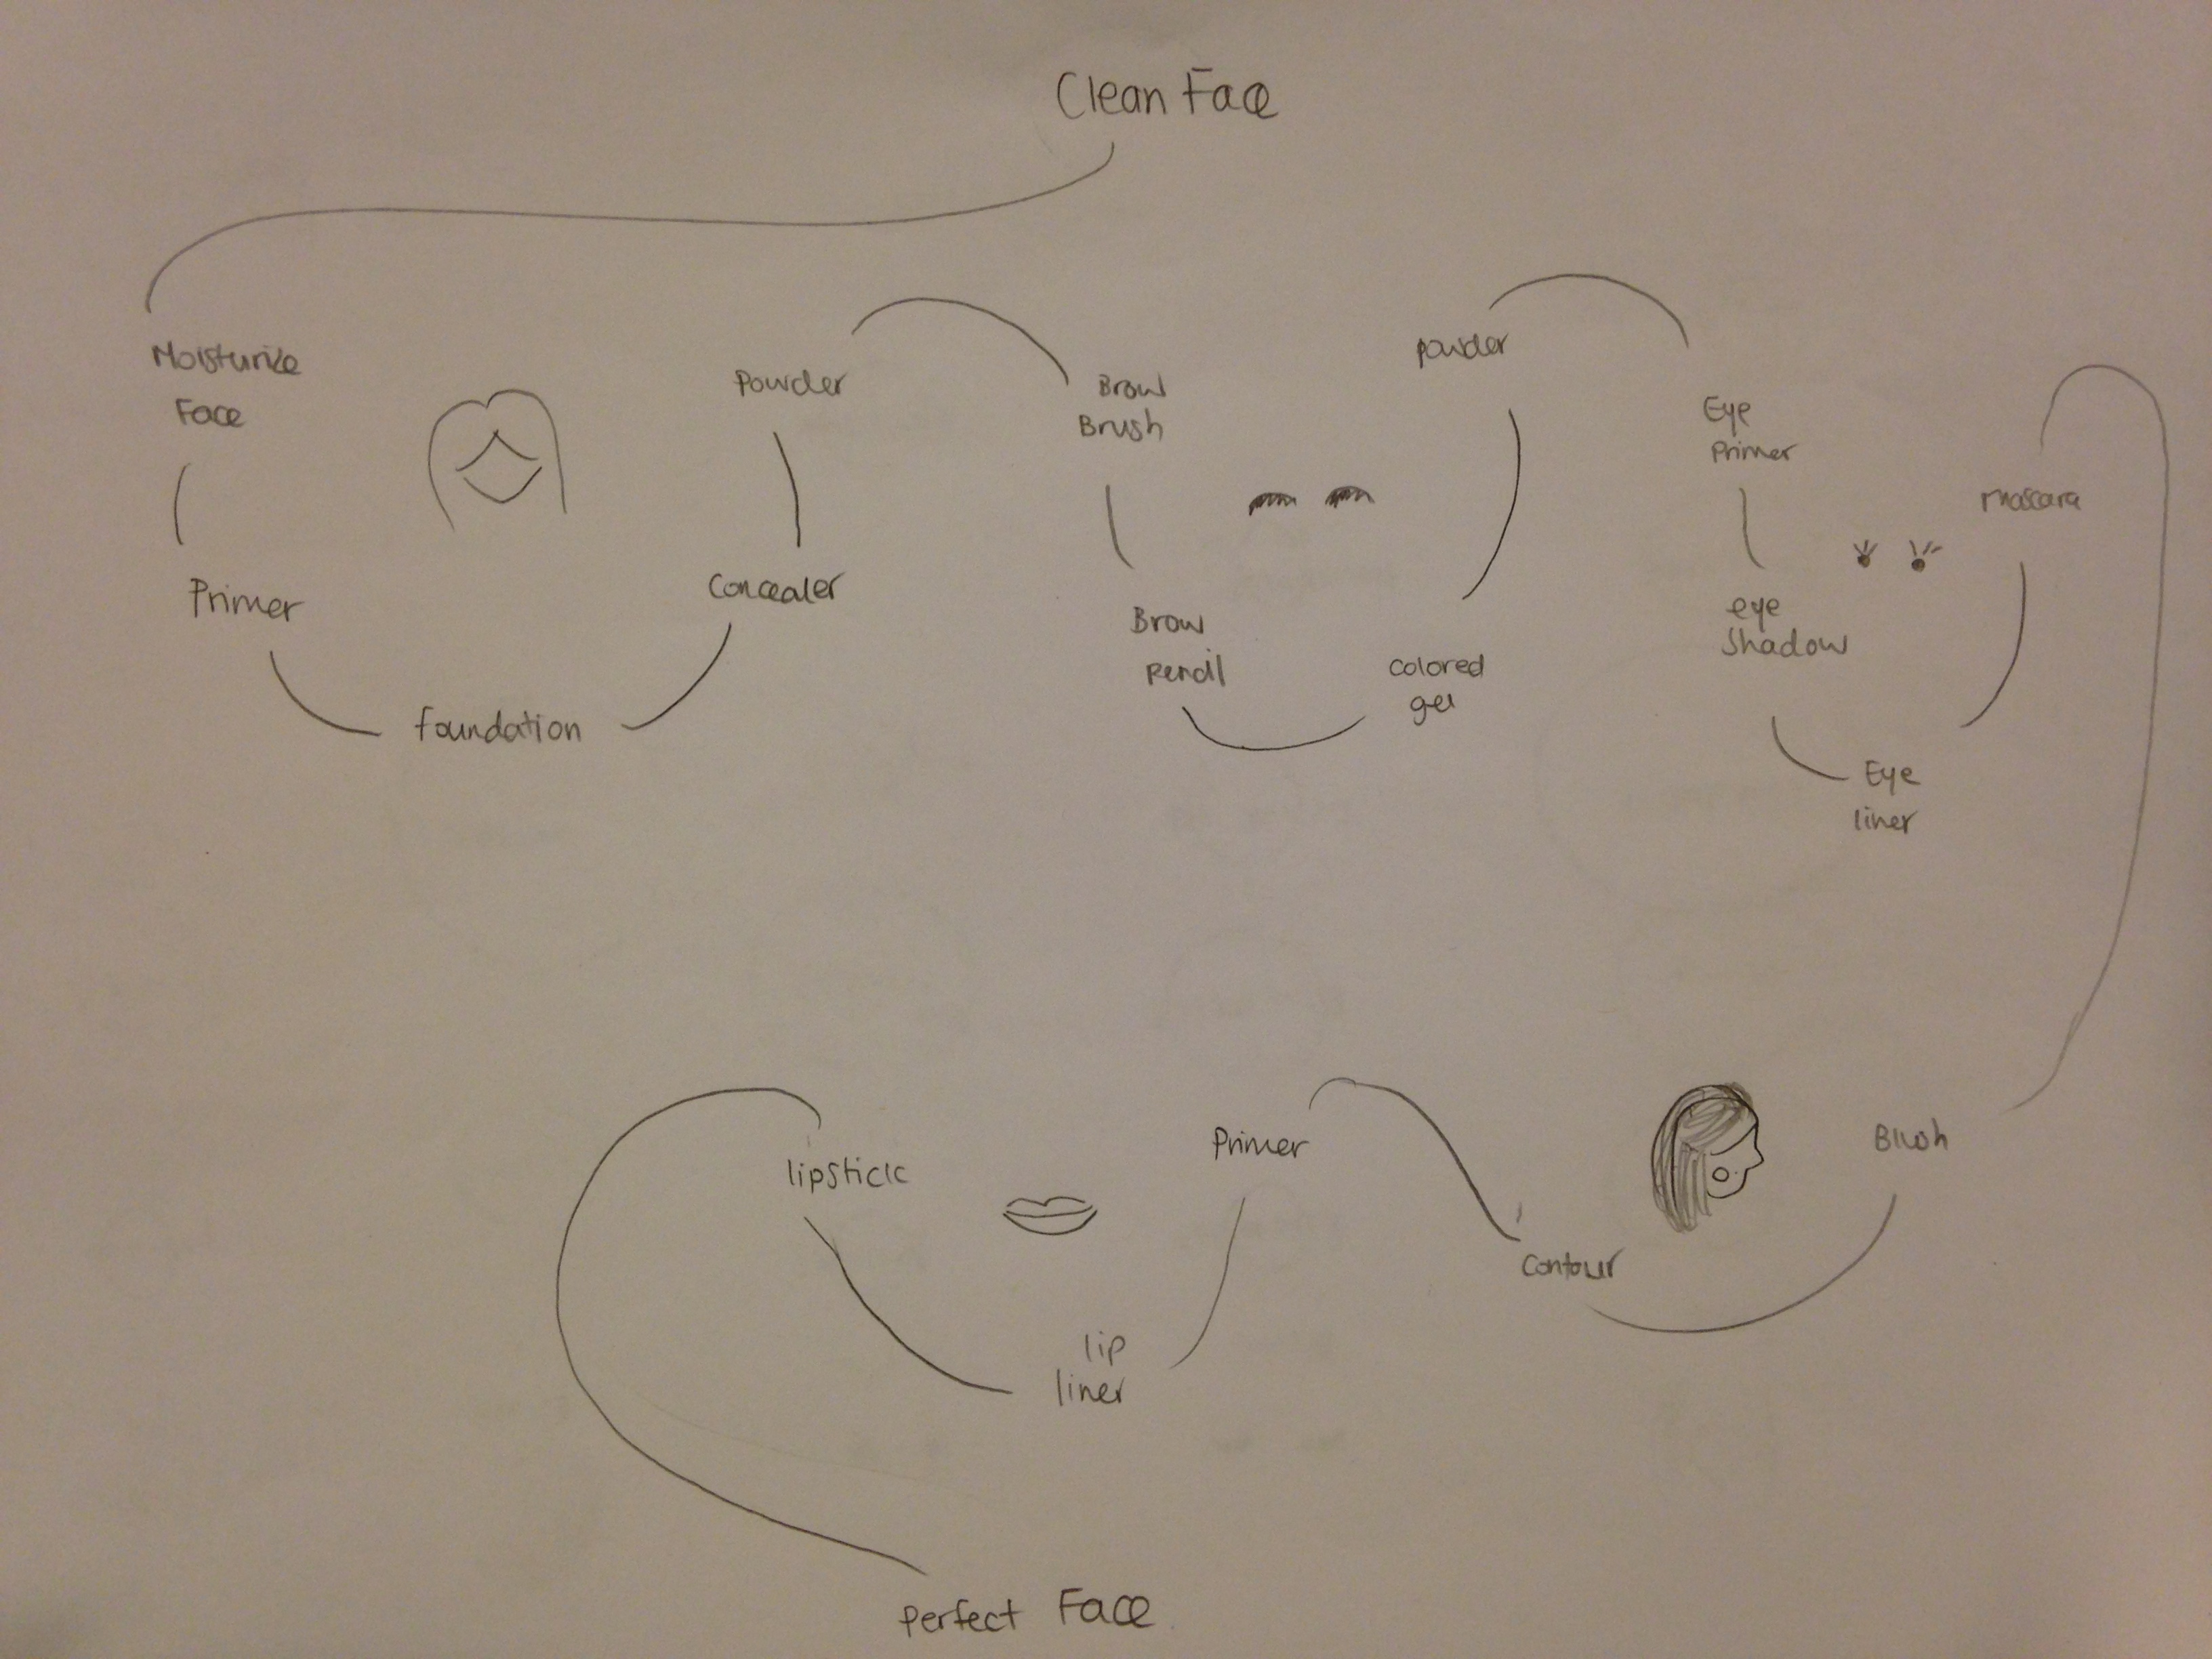 Clean Face
Moisturize
Face
Primer
foundation
Concealer
Powder
Brow
Brush
Brow
Pencil
colored
gel
powder
Eye
Primer
eye
Shadow
Eye
liner
mascara
Blush
Contour
Primer
lip
liner
lipstick
perfect Face